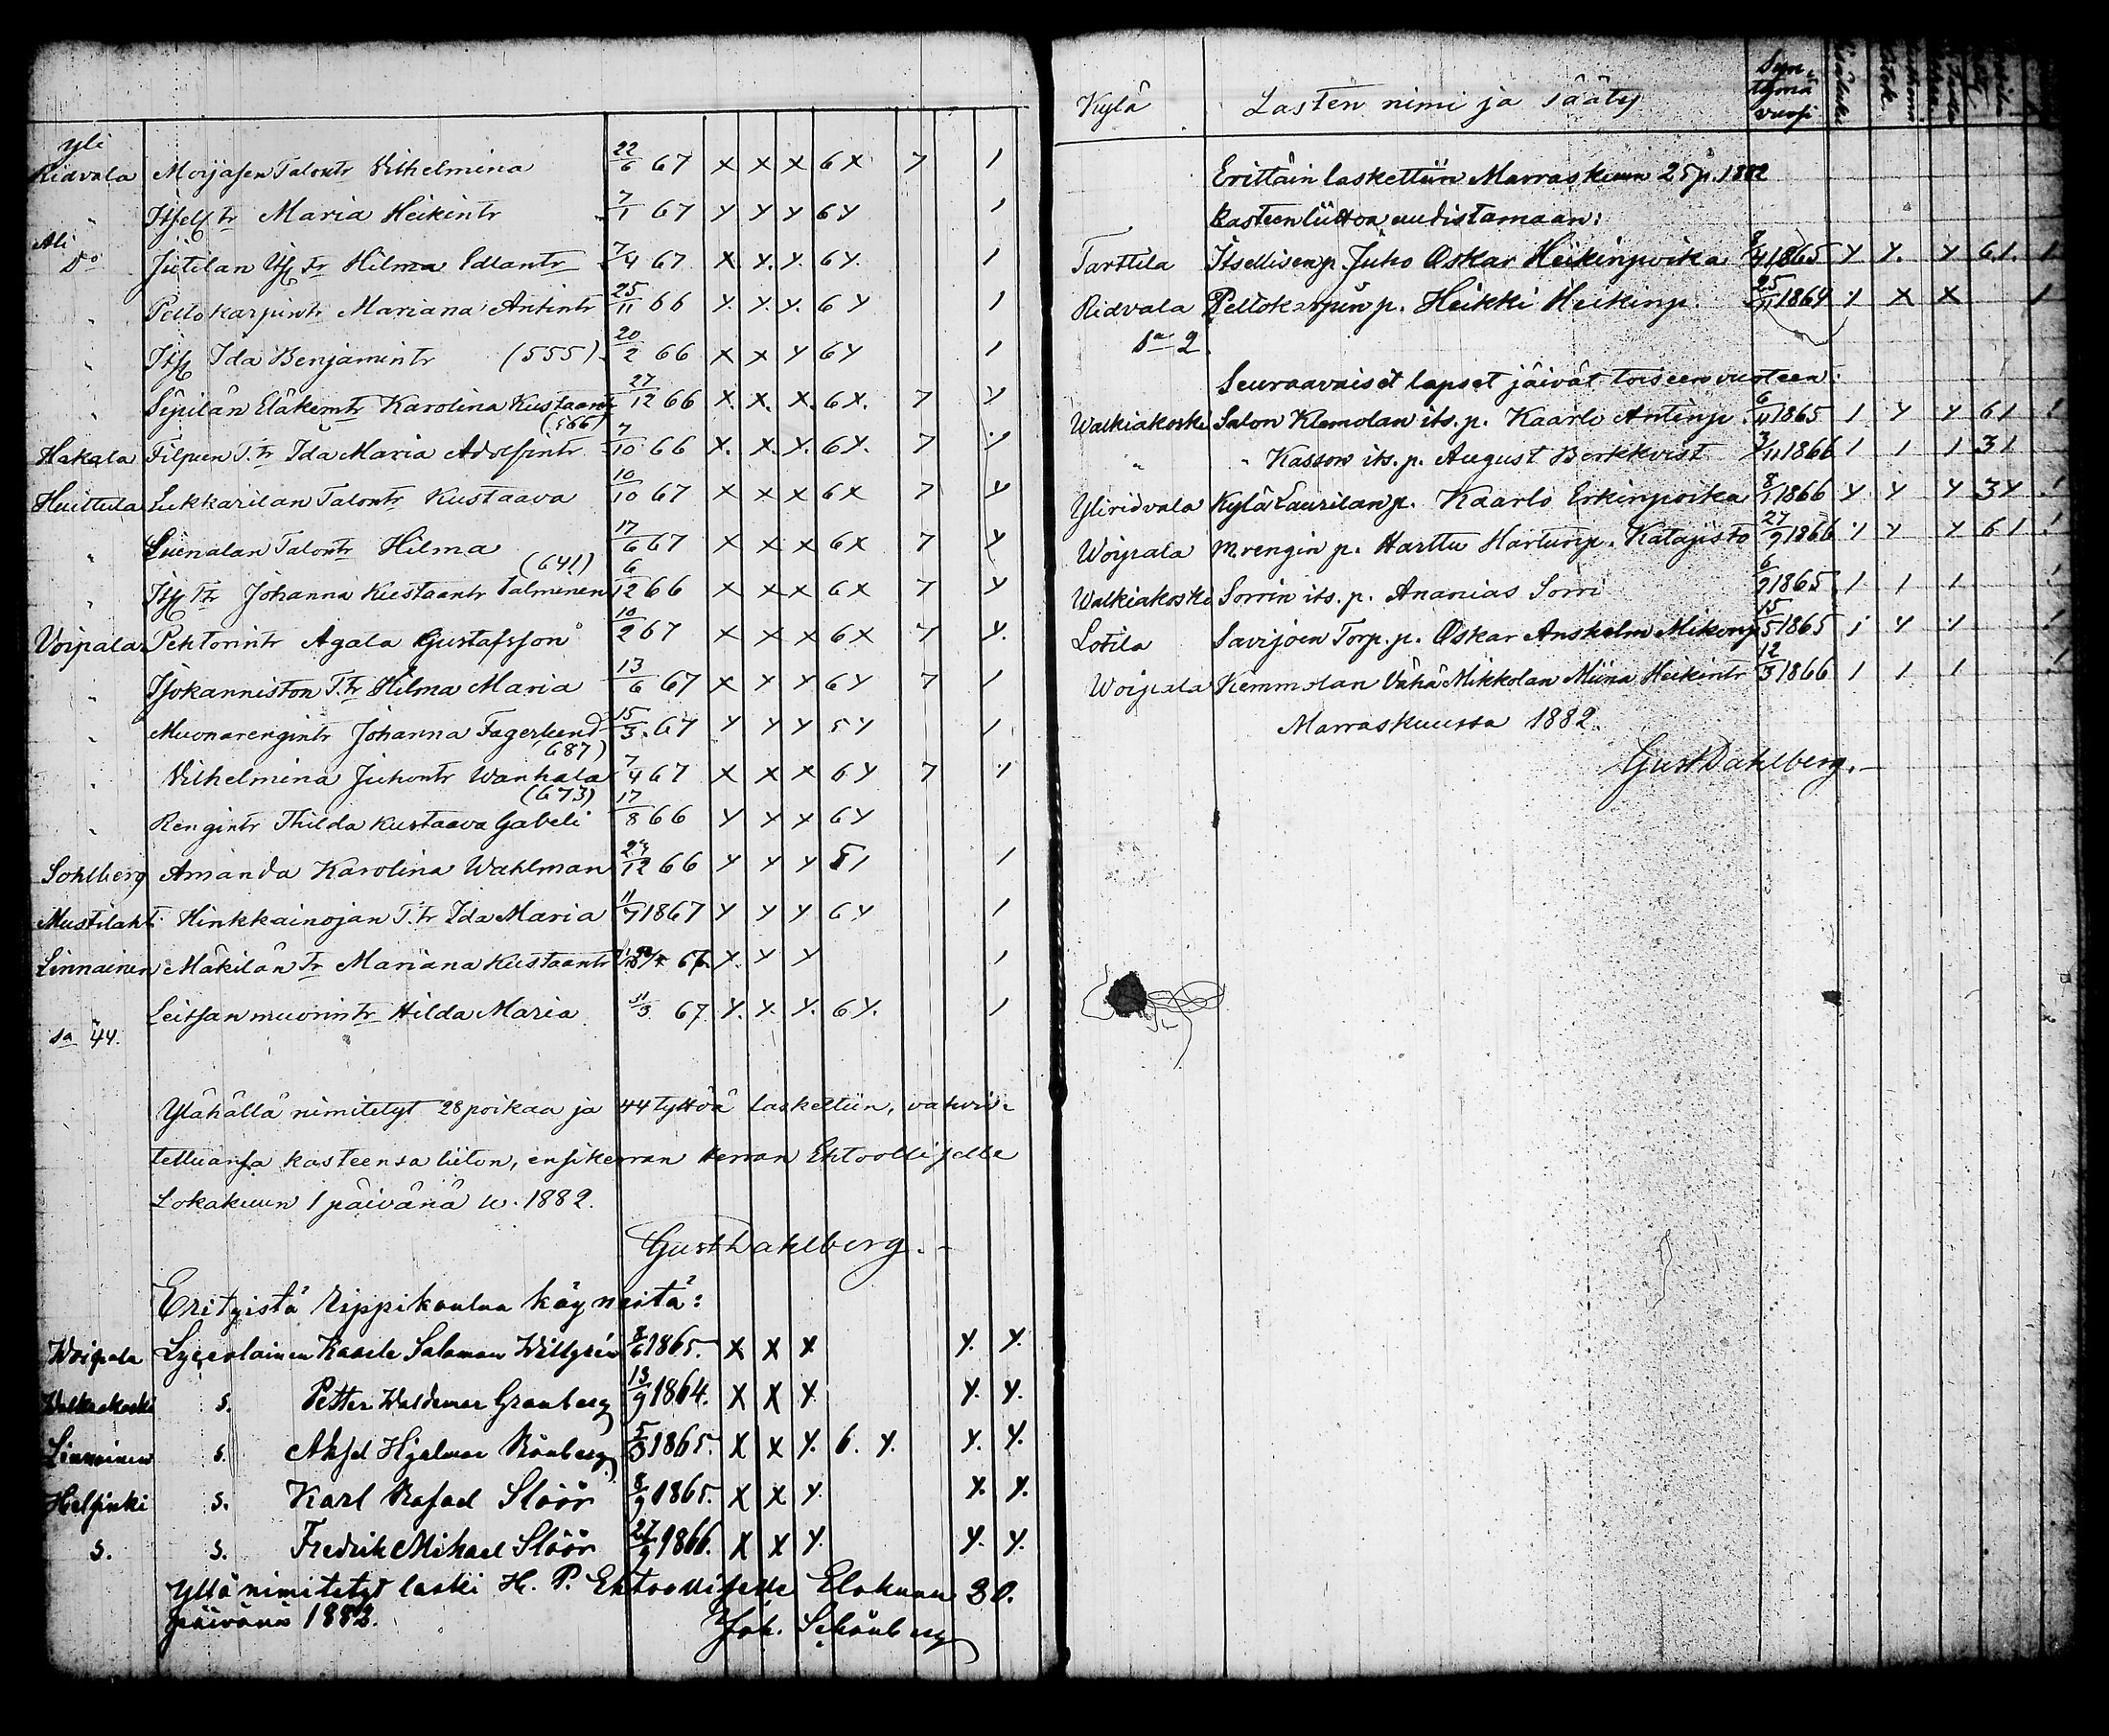 Yli
Ridvala Moijasen Talontr Vilhelmina 22/6 67 x x x 6 x 7 1
" Itsell tr Maria Heikintr 7/1 67 y y y 6 y 1
Ali
Do Jutilan Its tr Hilma Edlantr 7/4 67 x y. y. 6 y. 1
" Peltokarpintr Mariana Antintr 25/11 66 y. y. y. 6 y 1
" Its Ida Benjamintr (555). 20/2 66 x x y 6 y 1
" Sipilän Eläkemtr Karolina Kustaantr 27/12 66 x. x. x. 6 x. 7 y
(566)
Hakala Filpun T. tr Ida Maria Adolfintr 7/10 66 x. x. y. 6 y. 7 y
Huittula Lukkarilan Talontr Kustaava 10/10 67 x x x 6 x 7 y
" Liunalan Talontr Hilma 17/6 67 x x x 6 x 7 y
(641)
" Its Tr Johanna Kustaantr Salminen 6/12 66 x x x 6 x 7 y
Voipala Pehtorintr Agata Gustafsson 10/2 67 x x x 6 x 7 y.
" Isokanniston T. tr Hilma Maria 13/6 67 x y y 6 y 7 1
" Muonarengintr Johanna Fagerlund 15/3. 67 y y y 5 y 1
687)
" Vilhelmina Juhontr Wanhala 7/4 67 x x x 6 y 7 y
(673)
" Rengintr Thilda Kustaava Gabeli 17/8 66 y y y 6 y
Sohlberg Amanda Karolina Wahlman 24/12 66 y y y 5 1 1
Mustilaht. Hinkkainojan T. tr Ida Maria 11/7 1867 y y y 6 y 1
Linnainen Mäkilän Tr Mariana Kustaantr 67. y. y y 1
" Leitsan muorintr Hilda Maria 31/3 67 y. y. y. 6 y. 1
Sa 44.
Ylähällä nimitetyt 28 poikaa ja 44 tyttöä laskettiin, vahvis-
tettuansa kasteensa liiton, ensikerran kerran Ehtoolliselle
Lokakuun 1 päivänä w. 1882.
Gust Dahlberg.-
Erityistä rippikoulua käyneitä:
Woipala Lyceolainen Kaarle Salomon Willgrén 8/6 1865. x x x y. y.
Walkiakoski s. Petter Waldemar Granberg 13/9 1864. x x y y. y.
Linnainen s. Aksel Hjalmar Rönberg 5/3 1865. x x y. 6. y. y. y.
Helsinki s. Karl Rafael Slöör 8/9 1865. x x y. y. y.
s. s. Fredrik Mihael Slöör 27/9 1866. x x y. y. y.
Yllä nimitetyt laski H. P. Ehtoolliselle Elokuun 30.
päivänä 1883.
Joh. Schönberg
Kylä Lasten nimi ja sääty Syn-
tymä
vuosi
Erittäin laskettiin Marraskuun 25 p. 1882
kasteenliittoa uudistamaan:
Tarttila Itsellisen p. Juho Oskar Heikinpoika 8/4 1865 y y. y 6 1. 1
Ridvala Peltokarpin p. Heikki Heikinp. 25/11 1864 y x x 1
Sa 2.
Seuraavaiset lapset jäivät toiseen vuoteen:
Walkiakoski Salon Klemolan its. p. Kaarlo Antinp. 6/4 1865 1 y y 6 1 1
" " Kasson its. p. August Berkkvist 3/11 1866 1 1 1 3 1
Yliridvala Kylä Laurilan p. Kaarlo Erkinpoika 8/1 1866 y y y 3 y 1
Woipala M.rengin p. Harttu Hartunp. Katajisto 27/9 1866 y y y 6 1 1
Walkiakoski Sorrin its. p. Ananias Sorri 6/9 1865 1 1 1 1
Lotila Savijoen Torp. p. Oskar Anshelm Mikonp. 15/5 1865 1 y 1 1
Woipala Kemmolan Vähä Mikkolan Miina Heikintr 12/3 1866 1 1 1 1
Marraskuussa 1882.
Gust Dahlberg.-